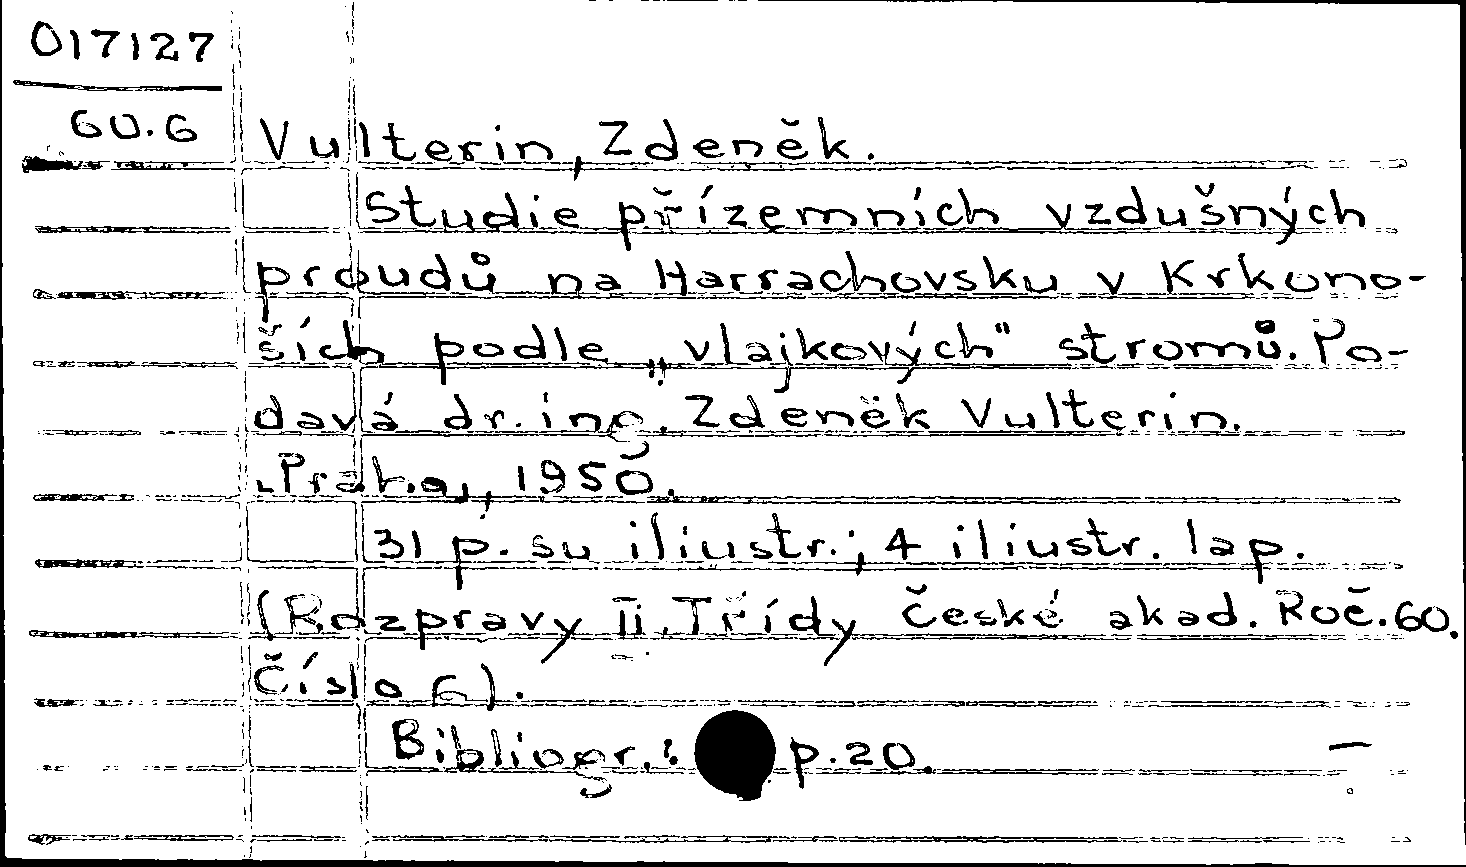 017127
60.6
Vulterin, Zdeněk.
Studie přízemních vzdušných
proudů na Harrachovsku v Krkono-
ších podle „vlajkových" stromů. Po-
davá dr. ing. Zdeněk Vulterin.
Praha, 1950.
31 p. su iliustr.; 4 iliustr. lap.
(Rozpravy II. Třídy České akad. Roč. 60.
Číslo 6).
Bibliogr.: p. 20.